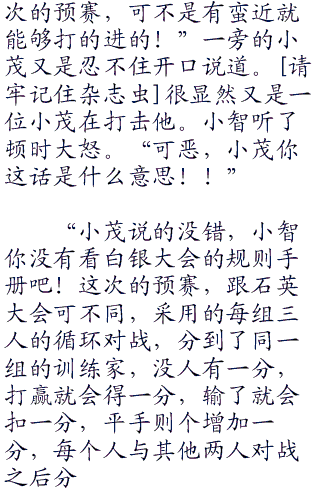 次的预赛，可不是有蛮近就
能够打的进的！”一旁的小
茂又是忍不住开口说道。[请
牢记住杂志虫]很显然又是一
位小茂在打击他。小智听了
顿时大怒。“可恶，小茂你
这话是什么意思！！”
“小茂说的没错，小智
你没有看白银大会的规则手
册吧！这次的预赛，跟石英
大会可不同，采用的每组三
人的循环对战，分到了同一
组的训练家，没人有一分，
打赢就会得一分，输了就会
扣一分，平手则个增加一
分，每个人与其他两人对战
之后分